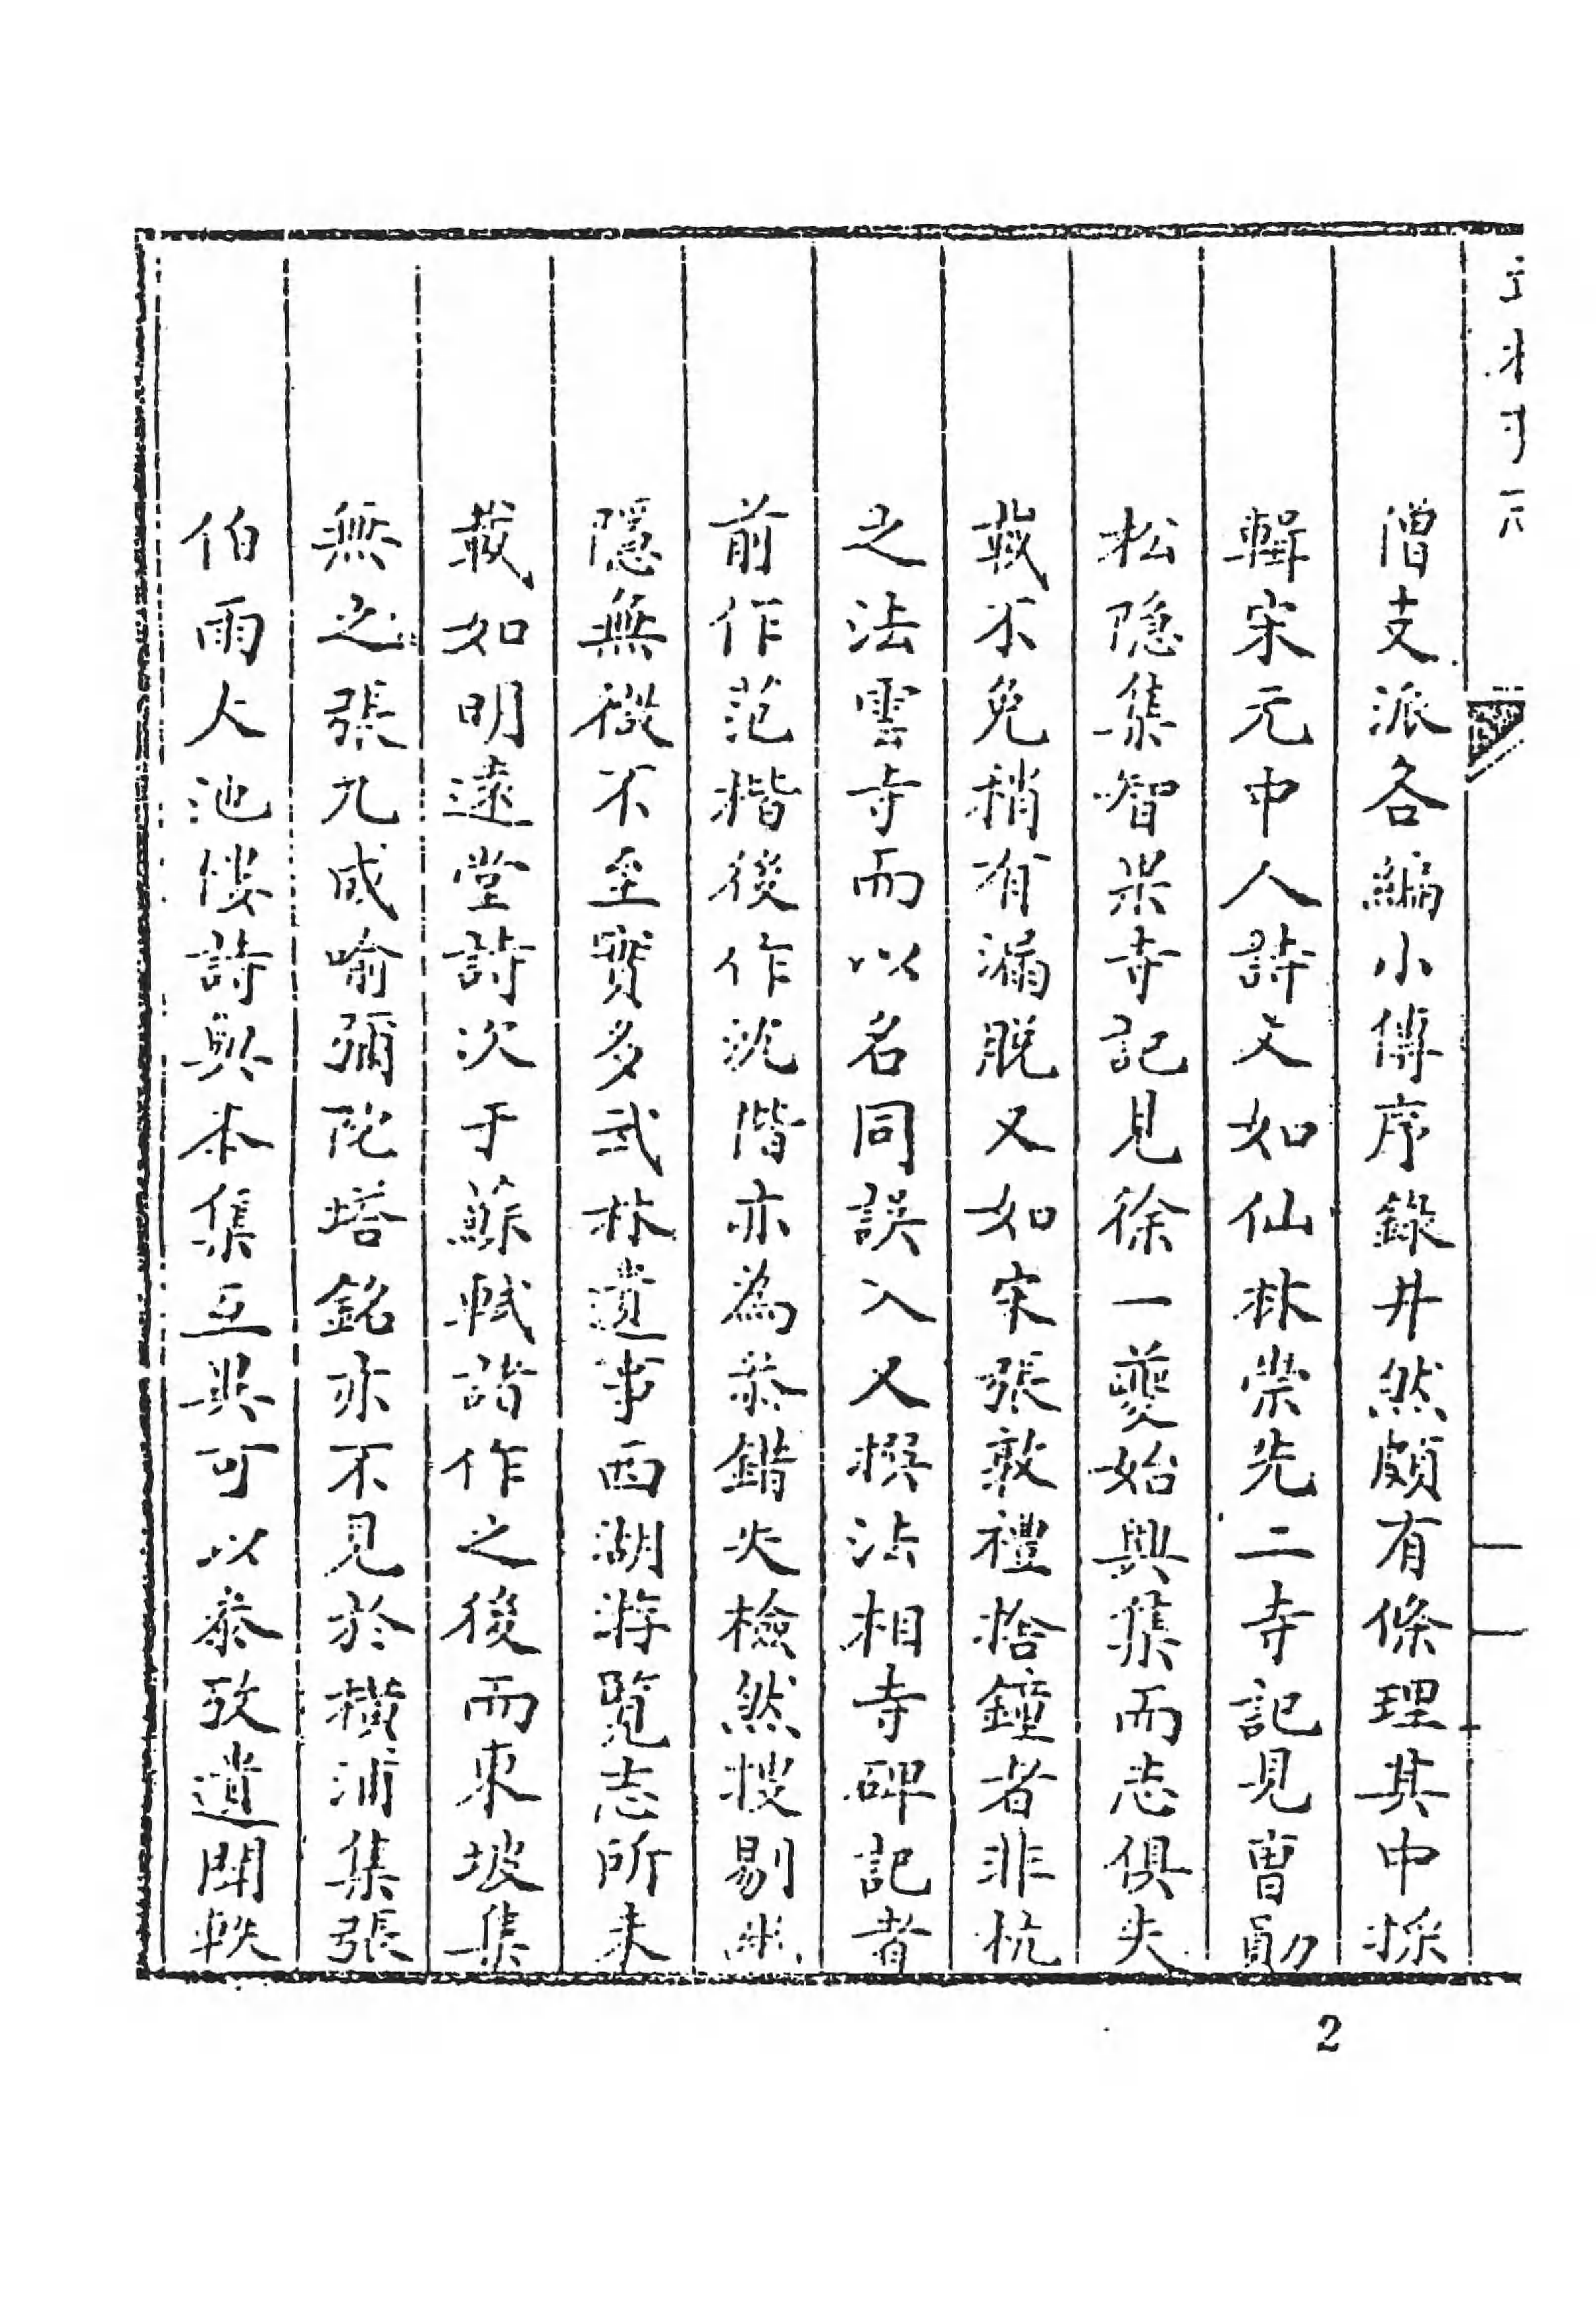 僧支派各編小傳序錄井然頗有條理其中採
輯宋元中人詩文如仙林崇先二寺記見曹勛
松隱集智果寺記見徐一夔始興集而志俱失
載不免稍有漏脫又如宋張敦禮捨鐘者非杭
之法雲寺而以名同誤入又撰法相寺碑記者
前作范楷後作沈階亦為叅錯失檢然搜剔幽
隱無微不至實多武林遺事西湖游覧志所未
載如明遠堂詩次于蘇軾諧作之後而東坡集
無之張九成喻彌陀塔銘亦不見於橫浦集張
伯雨人池樓詩與本集互異可以叅攷遺聞軼
2